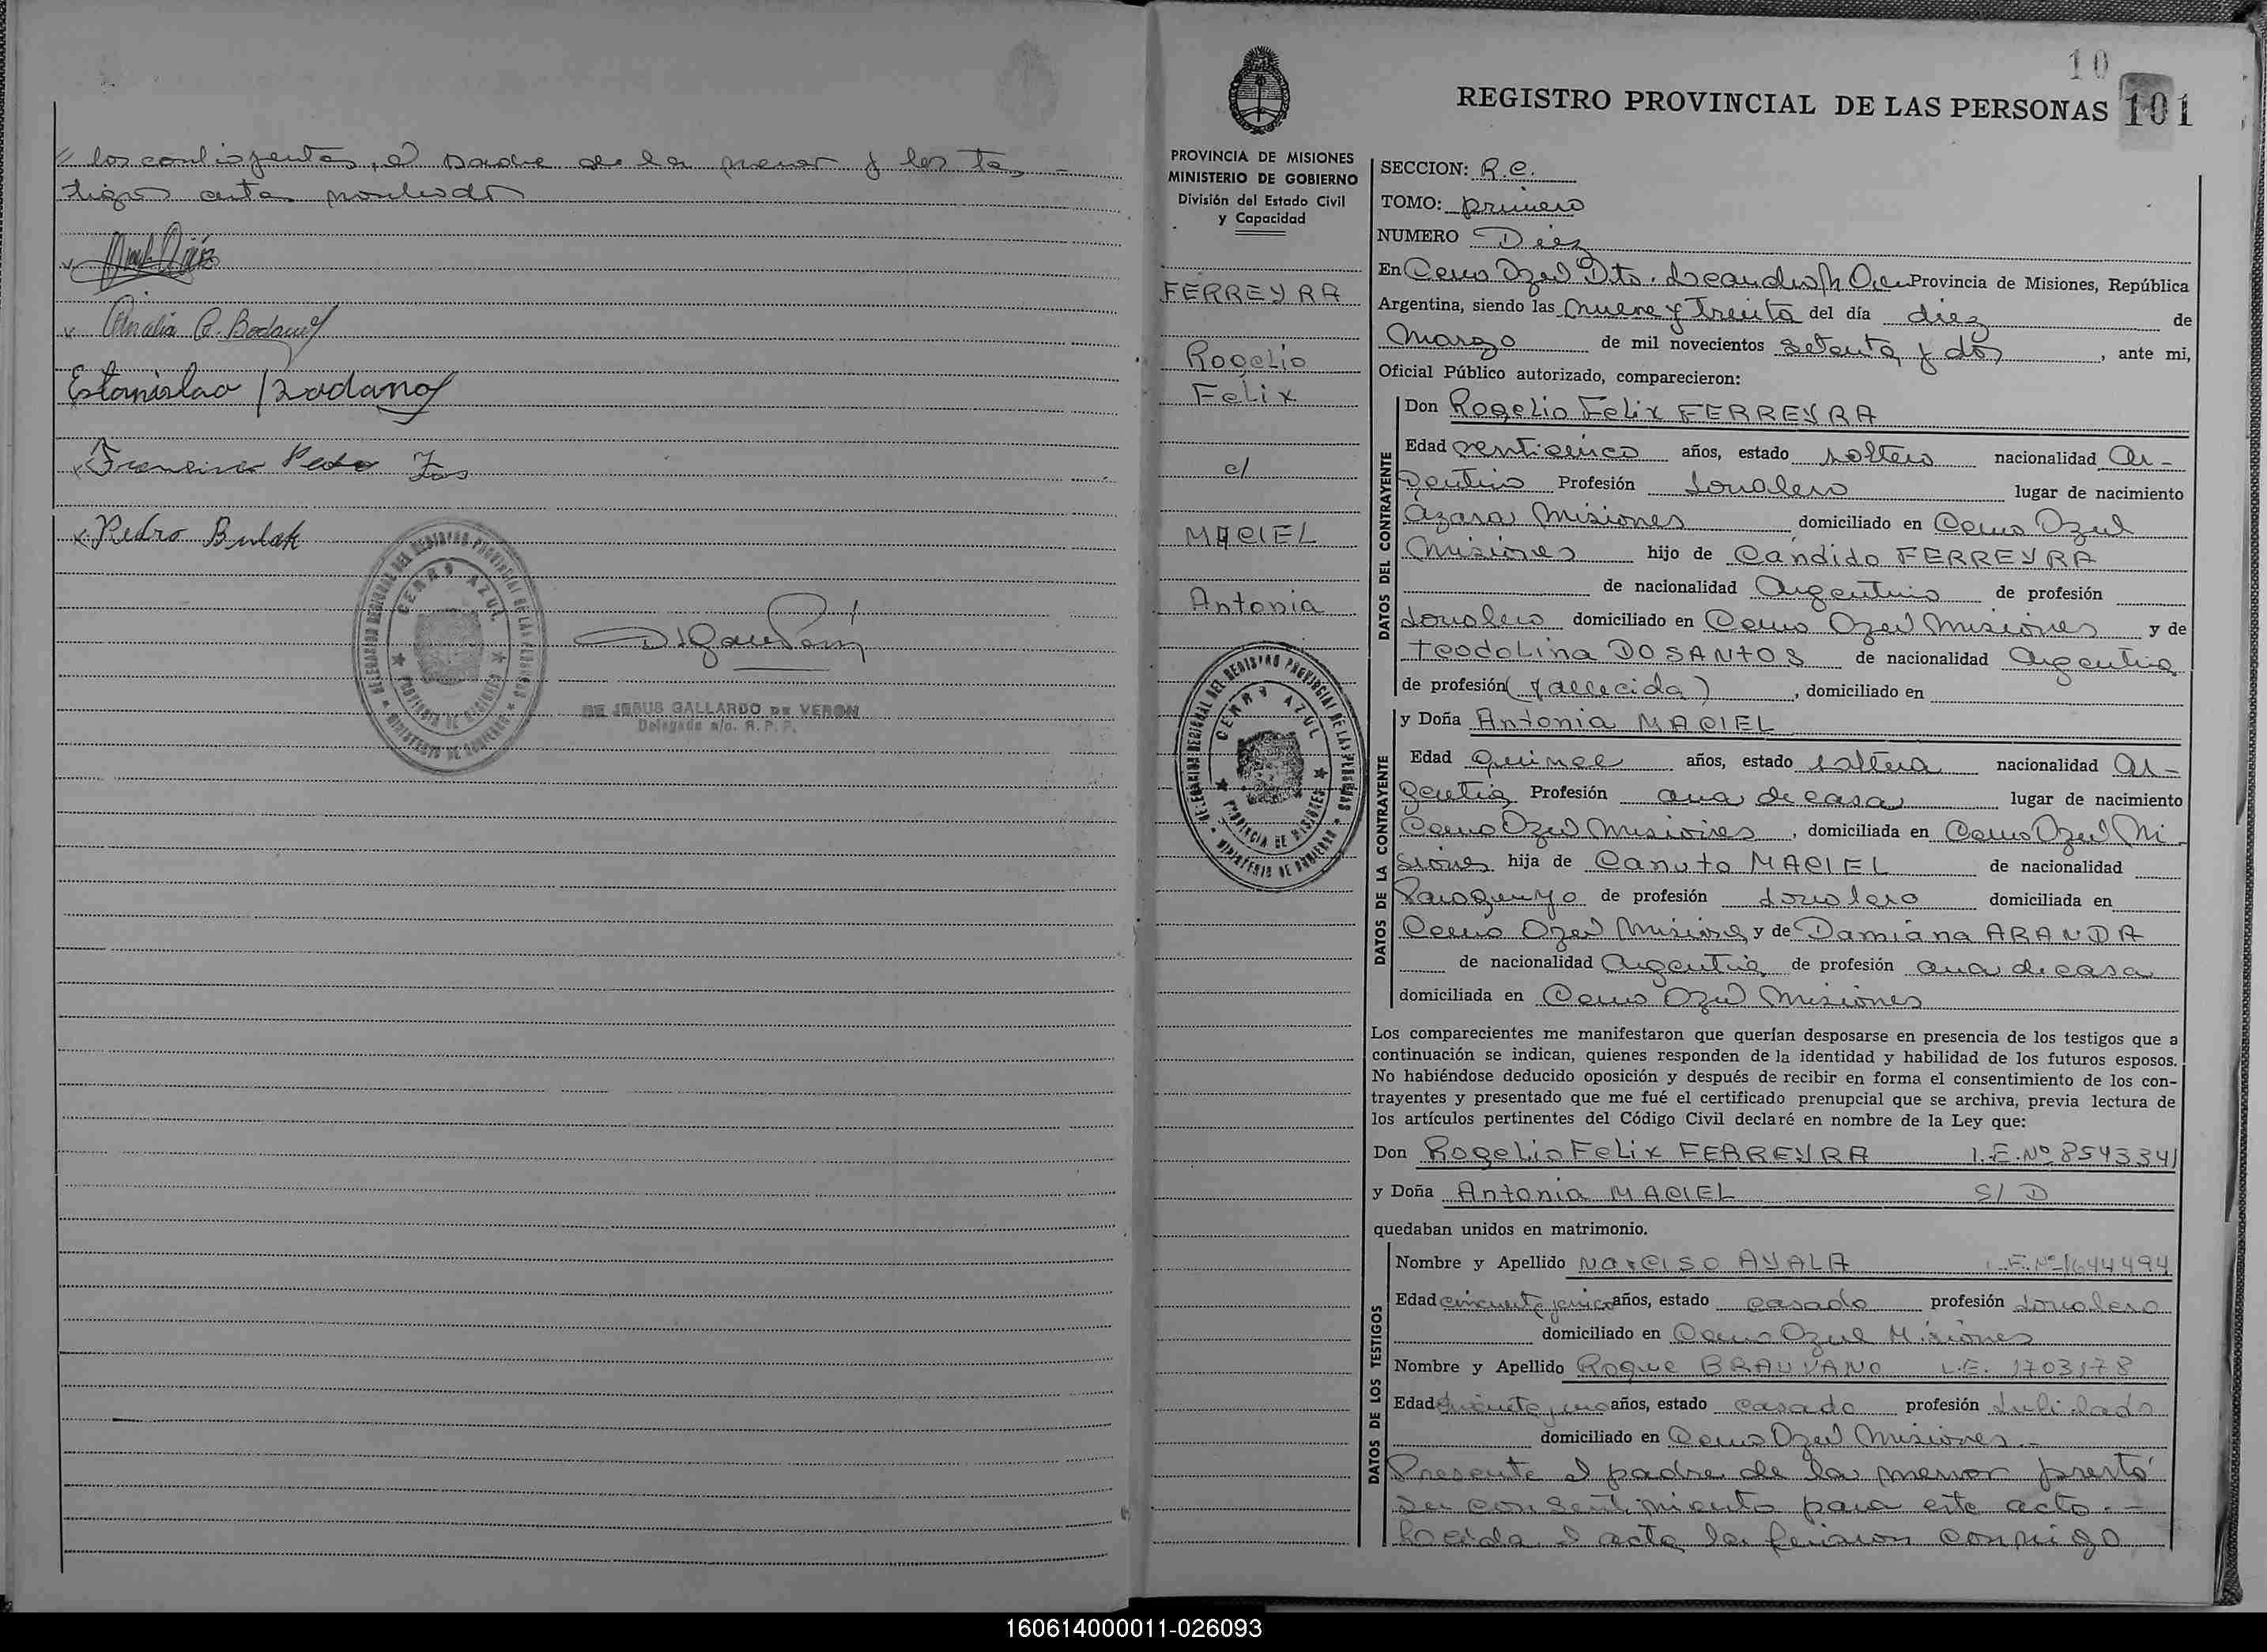 los contrayentes, el padre de la menor y los tes-
tigos antes nombrados
Amalia R. Bodanof
Estanislao Bodanof
Francisco Pedro Zas
x Pedro Bulak
DELEGACION REGIONAL DEL REGISTRO PROVINCIAL DE LAS PERSONAS
CERRO AZUL
PROVINCIA DE MISIONES
MINISTERIO DE GOBIERNO
DE JESUS GALLARDO DE VERON
Delegada a/c. R. P. P.
10
REGISTRO PROVINCIAL DE LAS PERSONAS 101
PROVINCIA DE MISIONES
MINISTERIO DE GOBIERNO
División del Estado Civil
y Capacidad
FERREYRA
Rogelio
Felix
c/
MACIEL
Antonia
DELEGACION REGIONAL DEL REGISTRO PROVINCIAL DE LAS PERSONAS
CERRO AZUL
PROVINCIA DE MISIONES
MINISTERIO DE GOBIERNO
SECCION: R.C.
TOMO: primero
NUMERO Diez
En Cerro Azul Dto. Leandro N Alem Provincia de Misiones, República
Argentina, siendo las nueve y treinta del día diez de
Marzo de mil novecientos setenta y dos, ante mi,
Oficial Público autorizado, comparecieron:
DATOS DEL CONTRAYENTE
Don Rogelio Felix FERREYRA
Edad venticinco años, estado soltero nacionalidad Ar-
gentino Profesión Jornalero lugar de nacimiento
Azara Misiones domiciliado en Cerro Azul
Misiones hijo de Cándido FERREYRA
de nacionalidad Argentino de profesión
Jornalero domiciliado en Cerro Azul Misiones y de
Teodolina DO SANTOS de nacionalidad Argentina
de profesión (fallecida), domiciliado en
DATOS DE LA CONTRAYENTE
y Doña Antonia MACIEL
Edad quince años, estado soltera nacionalidad Ar-
gentina Profesión ama de casa lugar de nacimiento
Cerro Azul Misiones, domiciliada en Cerro Azul Mi
siones hija de Canuto MACIEL de nacionalidad
Paraguayo de profesión Jornalero domiciliada en
Cerro Azul Misiones y de Damiana ARANDA
de nacionalidad Argentina de profesión ama de casa
domiciliada en Cerro Azul Misiones
Los comparecientes me manifestaron que querían desposarse en presencia de los testigos que a
continuación se indican, quienes responden de la identidad y habilidad de los futuros esposos.
No habiéndose deducido oposición y después de recibir en forma el consentimiento de los con-
trayentes y presentado que me fué el certificado prenupcial que se archiva, previa lectura de
los artículos pertinentes del Código Civil declaré en nombre de la Ley que:
Don Rogelio Felix FERREYRA L.E. Nº 8543341
y Doña Antonia MACIEL S/D
quedaban unidos en matrimonio.
DATOS DE LOS TESTIGOS
Nombre y Apellido Narciso AYALA L.E. Nº 1644494
Edad cincuenta y cinco años, estado casado profesión Jornalero
domiciliado en Cerro Azul Misiones
Nombre y Apellido Roque BRAUVANO L.E. 1703178
Edad cincuenta y uno años, estado casado profesión Jubilado
domiciliado en Cerro Azul Misiones.-
Presente el padre de la menor prestó
su consentimiento para este acto.-
Leída el acta la firman conmigo
160614000011-026093